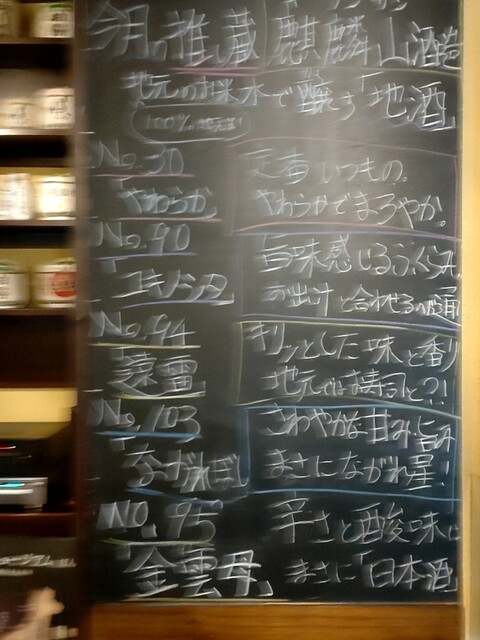 今月の推し蔵 麒麟山酒造
地元のお米水で醸す「地酒」
100%地元!
No.30
やわらか
定番いつもの。
やわらかでまろやか!
No.90
ユキノシタ
旨味感じるふくらみ
お出汁と合わせるの
No.94
遠雷
キリッとした味と香り
地元ではお寿司と?!
No.103
ながれぼし
さわやかな甘み旨み
まさにながれ星!
No.95
金雲母
辛さと酸味に
まさに「日本酒